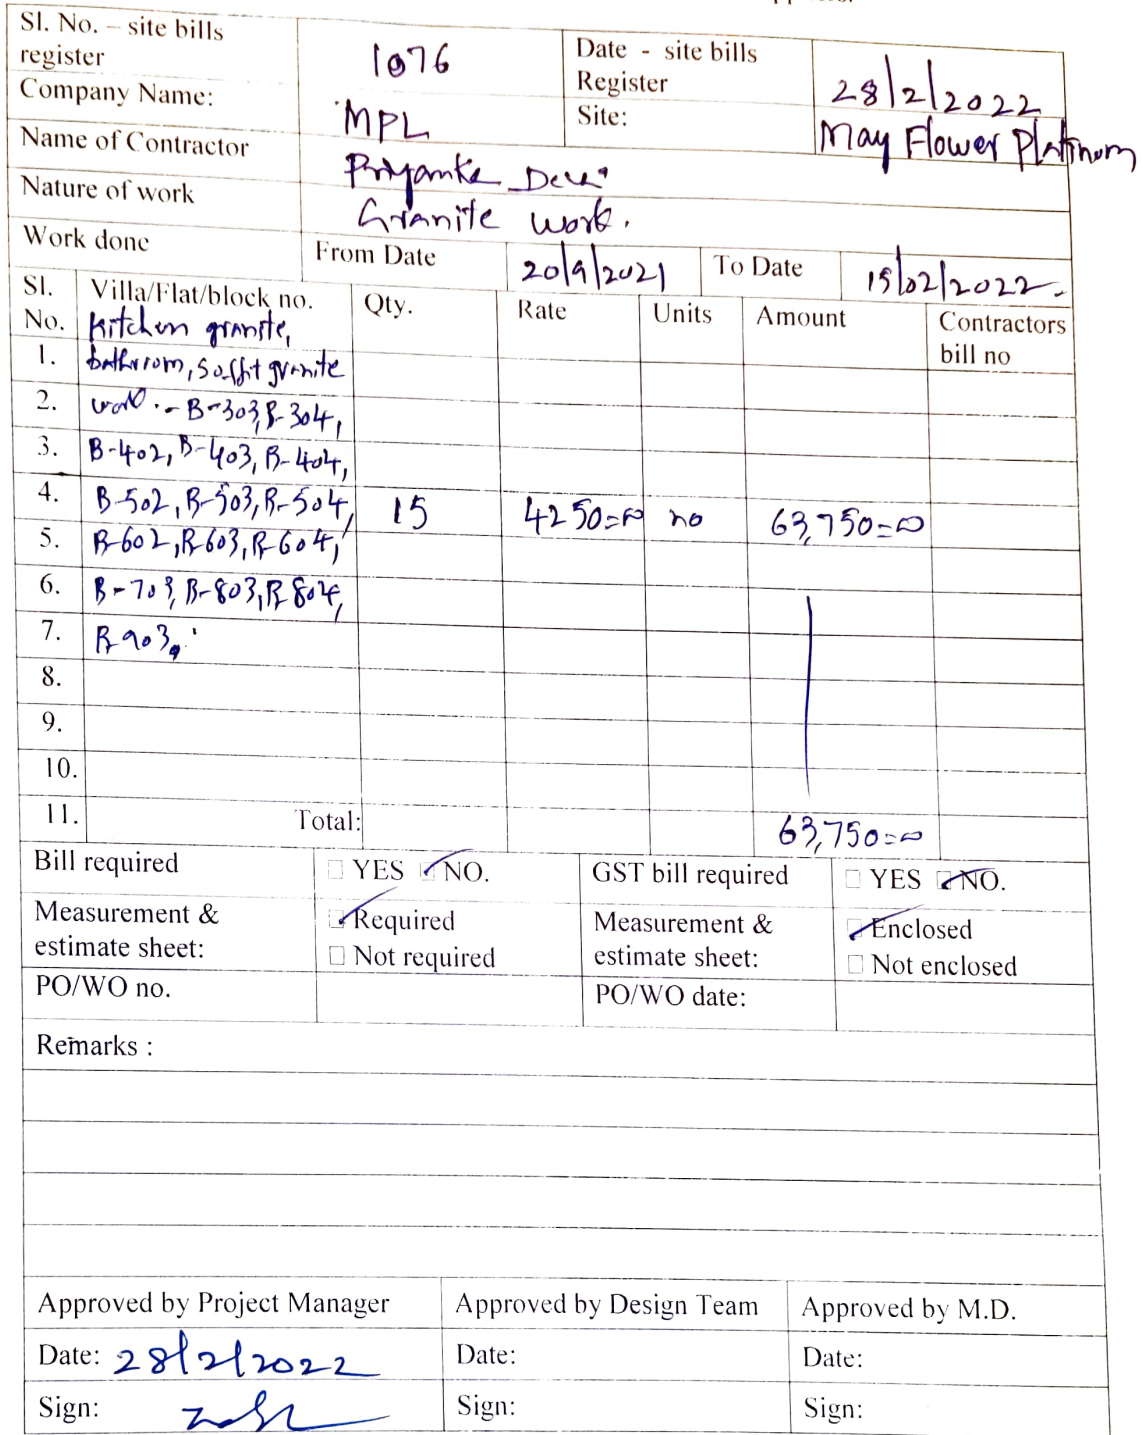 Sl. No. – site bills register 1076 Date - site bills Register 28/2/2022
Company Name: MPL Site: May Flower Platinum
Name of Contractor Priyanka Devi
Nature of work Granite work.
Work done From Date 20/9/2021 To Date 15/02/2022
Sl. No. Villa/Flat/block no. Qty. Rate Units Amount Contractors bill no
Kitchen granite,
1. bathroom, soffit granite
2. work .- B-303, B-304,
3. B-402, B-403, B-404,
4. B-502, B-503, B-504, 15 4250=00 no 63,750=00
5. B-602, B-603, B-604,
6. B-703, B-803, B-804,
7. B-903,
8.
9.
10.
11. Total: 63,750=00
Bill required YES NO. GST bill required YES NO.
Measurement & estimate sheet: Required Measurement & estimate sheet: Enclosed
Not required Not enclosed
PO/WO no. PO/WO date:
Remarks :
Approved by Project Manager Approved by Design Team Approved by M.D.
Date: 28/2/2022 Date: Date:
Sign: Sign: Sign: